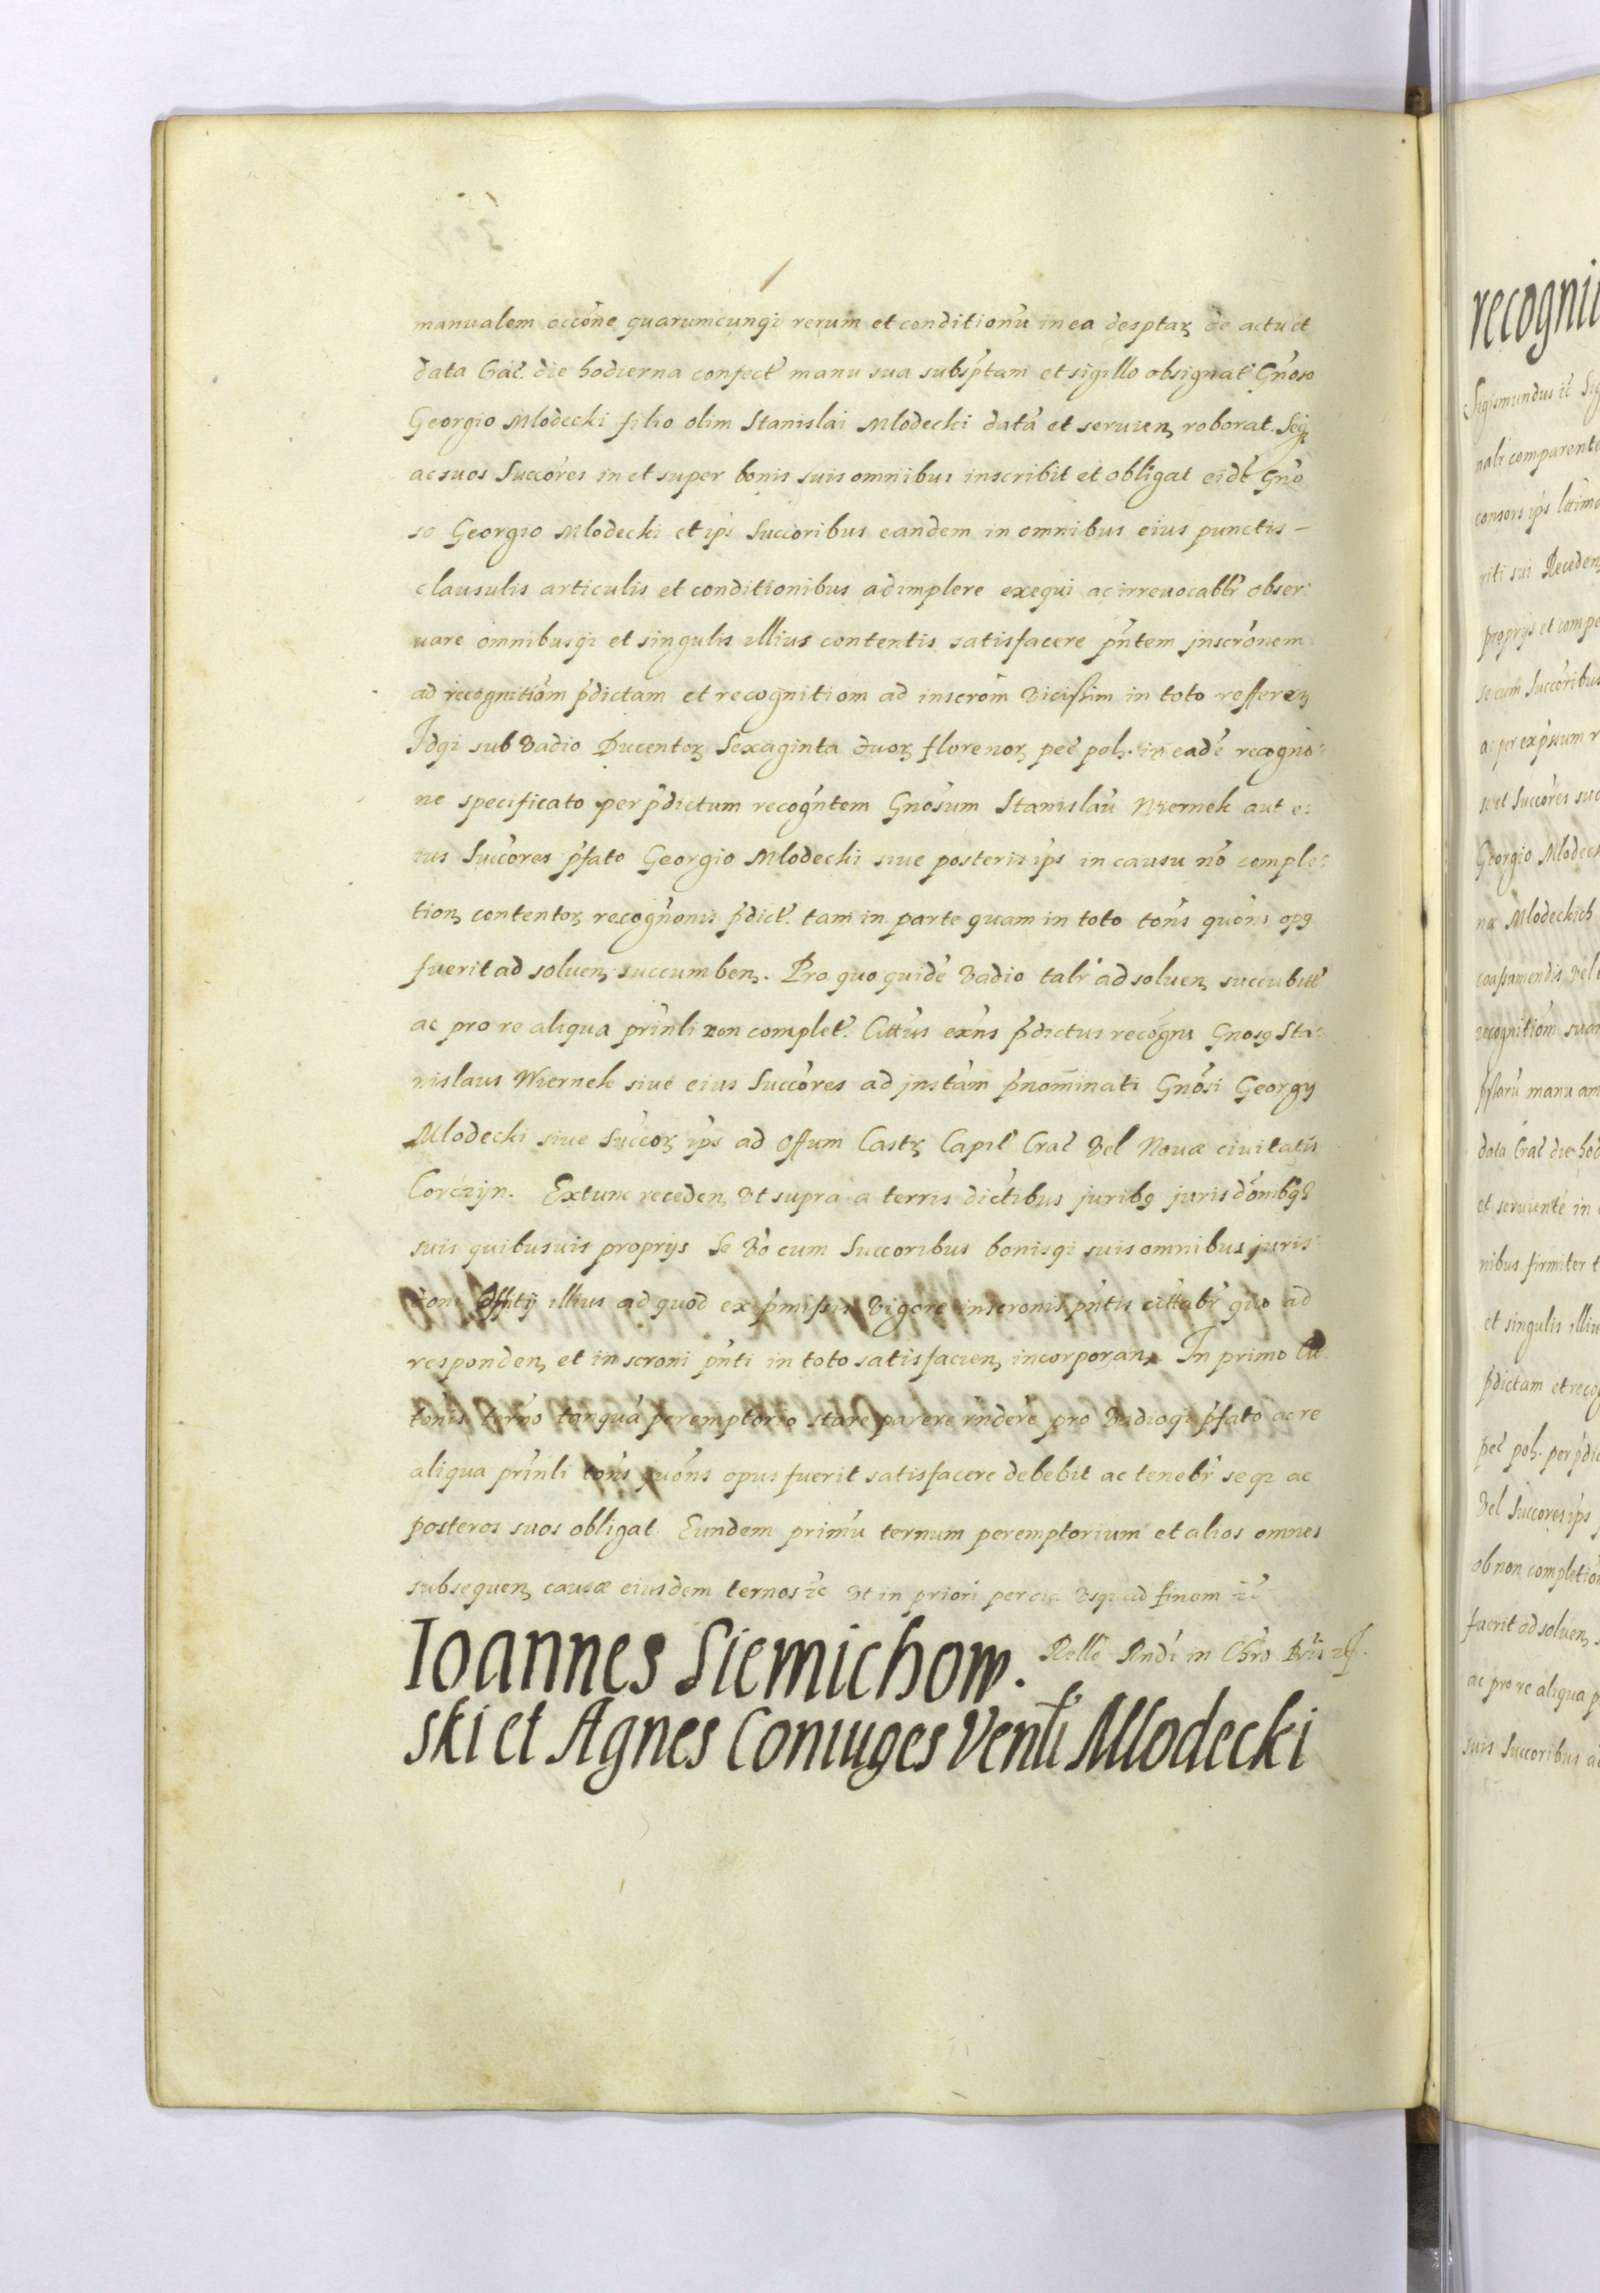 manualem occone quarumcunqi rerum et conditionu in ea desptar de actu et
data Crac. die hodierna confect manu sua subsptam et sigillo obsignat Gnoso
Georgio Mlodecki filio olim Stanislai Mlodecki data et seruien roborat. Seq
ac suos Succores in et super bonis suis omnibus inscribit et obligat eidt Gno
so Georgio Mlodecki et ips Succoribus eandem in omnibus eius punctis –
clausulis articulis et conditionibus adimplere exequi ac irreuocabbr obser:
uare omnibusqi et singulis illius contentis satisfacere pntem inscronem
ad recognitiom pdictam et recognitiom ad inscrom vicissim in toto refferen
Idqi sub vadio Ducentor Sexaginta duor florenor pec pol. in eade recogno:
ne specificato per pdictum recogntem Gnosum Stanislau Wiernek aut e:
ius Succores pfato Georgio Mlodecki siue posteris ips in causu no comple:
tion contentor recognonis pdict. tam in parte quam in toto tons quons opq
fuerit ad soluen succumben. Pro quo quide vadio talr ad soluen succubitt
ac pro re aliqua prinli non complet. Cittus exns pdictus recogns Gnosq Sta:
nislaus Wiernek siue eius Succores ad instam pnominati Gnosi Georgij
Mlodecki siue Succor ips ad Offum Castr Capit Crac vel Nouæ ciuitatis
Corczyn. Extunc receden vt supra a terris dictibus juribq jurisdonibqz
suis quibusuis proprijs Se vo cum Succoribus bonisqi suis omnibus juris:
doni Offitij illius ad quod ex pmissis vigore inscronis pntis cittabr quo ad
responden et inscroni pnti in toto satisfacien incorporan. In primo Cit
tonis terno tanqua peremptorio stare parere rindere pro vadioqi pfato ac re
aliqua prinli tons quons opus fuerit satisfacere debebit ac tenebr seqz ac
posteros suos obligat. Eundem primu ternum peremptorium et alios omnes
subsequen causæ eiusdem ternos etc vt in priori per vsq ad finem etc
Ioannes Siemichow. Relle Rndi in Chro
ski et Agnes Coniuges Venli Mlodecki
recogni
Sigismundus etc Sig
nalr comparente
consors ips lttima
riti sui Receden
proprijs et compe
se cum Succoribus
ac per expssum r
seqt Succores suo
Georgio Mlodec
na Mlodeckich
vel
recognitiom suam
manu am
data Crac die hod
et seruiente in
nibus firmiter t
et singulis illiu
pdictam et reco
pec pol. per pdic
vel Succores ips
ob non completio
fuerit ad soluen
ac pro re aliqua p
suis Succoribus ad